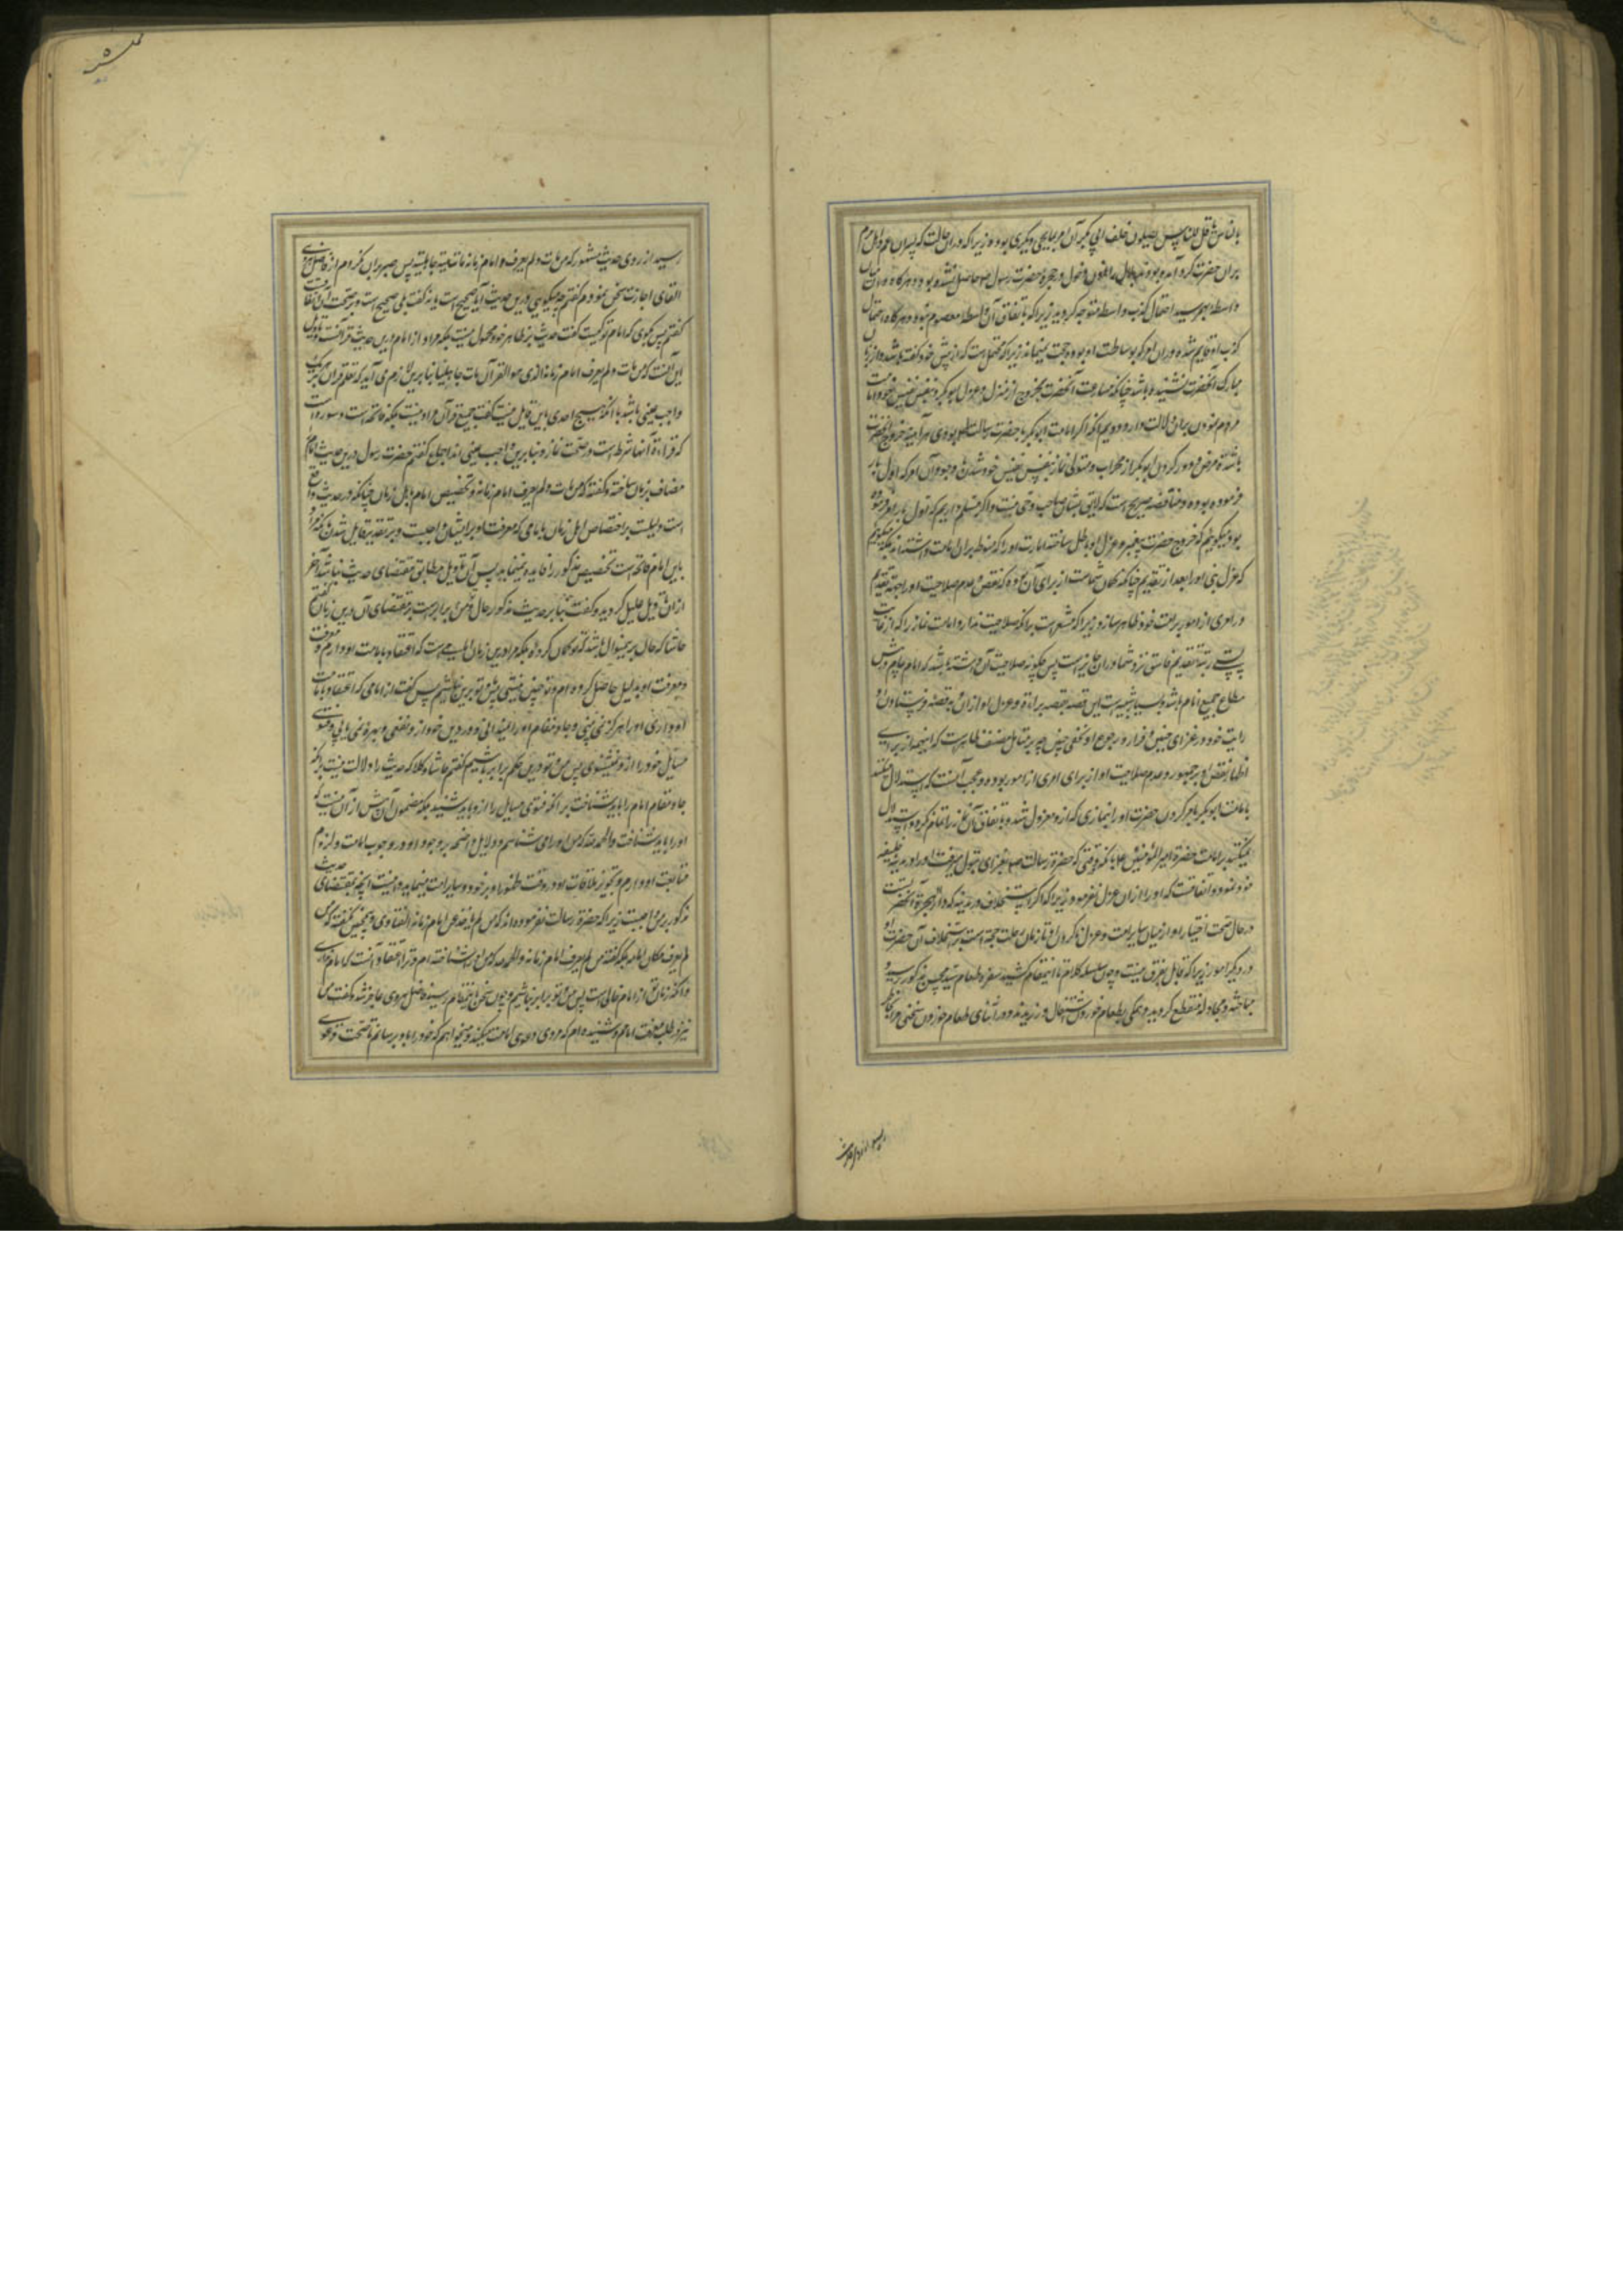 بران حضرت کرد آمده بودند بلال را اذن دخول در حجرهٔ حضرت رسول حاصل نشده بود و هرگاه در آن میان
واسطه بهم رسید احتمال کذب واسطه متوجه گردید زیرا که باتفاق آن واسطه معصوم نبود و هرگاه احتمال
کذب او قایم شد در آن امر که بوساطت او بود حجت نمیماند زیرا که محتمل است که از پیش خود گفته باشد و از زبان
مبارک آنحضرت نشنیده باشد چنانکه مسارعت آنحضرت بخروج از منزل و عزل ابوبکر و بنفس نفیس خود امامت
مردم نمودن بران دلالت دارد و دویم آنکه اگر امامت ابوبکر با حضرت رسالت بودی هر آینه خروج آنحضرت
با شدت مرض و دور کردن ابوبکر از محراب و متولی نماز بنفس نفیس خود شدن با وجود آن امر که اول بار
فرموده بود مناقضه صریح است که لایق بشان صاحب وحی نیست و اگر مسلم داریم که اول بار امر فرموده
بود میگوییم که خروج حضرت پیغمبر و عزل او باطل ساخته امارت او را که منوط بران امامت داشته‌اند بلکه میگوییم
که عزل نبی او را بعد از تقدیم چنانکه گمان شماست از برای آن بوده که نقص و عدم صلاحیت او را جهة تقدیم
در امری از امور بر امت خود ظاهر سازد زیرا که مشعر است برآنکه صلاحیت ندارد امامت نماز را که از غایت
پستی رتبه تقدیم فاسق نزد شما دران جایز است پس چگونه صلاحیت آن داشته باشد که امام عام و رئیس
مطاع جمیع انام باشد و بسیار شبیه است این قصه بقصه براءة و عزل او از آن و بقصه فرستادن او
رایت خود در غزای خیبر و فرار و رجوع او و مخفی چنین چیز بر متامل منصف ظاهر است که اینهمه از برای
اظهار نقص او بر جمهور و عدم صلاحیت او از برای امری از امور بوده و عجب آنست که استدلال میکنند
بامامت ابوبکر بامر کردن حضرت او را بنمازی که ازو معزول شد و باتفاق آن نماز را تمام نکرده و استدلال
نمیکنند بر امامت حضرت امیر المؤمنین علیه بآنکه وقتی که حضرت رسالت صلعم بغزای تبوک میرفت او را در مدینه خلیفه
خود نمود و اتفاقست که او را از ان عزل نفرمود زیرا که اگر استخلاف در مدینه که دار الهجرة آنحضرتست
در حال صحت و اختیار او از میان سایر امت و عزل ناکردن او تا زمان رحلت حجت است بر استخلاف آن حضرت او
در دیگر امور زیرا که قایل بفرق نیست و چون سلسله کلام تا اینمقام کشید سفره طعام سید محسن مذکور رسید و
مباحثه و مجادله منقطع گردید و همگی بطعام خوردن اشتغال ورزیدند و در اثنای طعام خوردن سخنی مرا بخاطر
رسید از روی حدیث مشهور که من مات و لم یعرف امام زمانه مات میتة جاهلیة پس صبر بران نکردم از فاضل هروی
القای اجازت سخن نمودم گفتم چه میگویی درین حدیث آیا صحیح است یا نه گفت بلی صحیح است و بر صحت آن اتفاقست
گفتم پس بگوی که امام تو کیست گفت حدیث بر ظاهر خود محمول نیست بلکه مراد از امام درین حدیث قرآنست و تاویل
این آنست که من مات و لم یعرف امام زمانه الذی هو القرآن مات جاهلیا بنابرین لازم می آید که تعلم قرآن بر هر یک
واجب عینی باشد با آنکه هیچ احدی باین قایل نیست گفت جمیع قرآن مراد نیست بلکه فاتحه است و سوره است
که قراءة آنها شرط است در صحت نماز و بنابرین واجب عینی اند اجماع گفتم حضرت رسول درین حدیث امام را
مضاف بزمان ساخته و گفته که من مات و لم یعرف امام زمانه و تخصیص امام باهل زمان چنانکه در حدیث واقع
است دلیلست بر اختصاص اهل زمان بامامی که معرفت او برایشان واجبست و بر تقدیر قایل شدن بآنکه مراد
باین امام فاتحه است تخصیص مذکور را فایده نمیماند پس آن تاویل مطابق مقتضای حدیث نباشد آخر
ازان تاویل عدول گردید و گفت بنابر حدیث مذکور حال من و تو برابر است بمقتضای آن درین زمان گفتم
حاشا که حال برینمنوال باشد که تو گمان کرده بلکه مرا درین زمان امامیست که اعتقاد بامامت او دارم و معرفت
و معرفت او بدلیل حاصل کرده ام و تو چنین نیستی پس من و تو برابر نباشیم پس گفت از امامی که اعتقاد بامامت
او داری او را هرگز نمی بینی و جا و مقام او را نمیدانی و در دین خود ازو نفعی و بهره نمی یابی و فتوی
مسایل خود را ازو نمیشنوی پس من و تو درین حکم برابر باشیم گفتم حاشا و کلا که حدیث را دلالت نیست برآنکه
جا و مقام امام را باید شناخت بر آنکه فتوی مسایل را ازو باید شنید بلکه مضمون آن بیش از آن نیست که
او را باید شناخت و الحمد لله که من او را می شناسم و دلایل واضحه بر وجود او و در وجوب امامت و لزوم
متابعت او دارم و تجویز ملاقات او در وقت ظهور او بر خود و سایر امت مینمایم و نیست آنچه بمقتضای حدیث
مذکور بر من واجبست زیرا که حضرت رسالت نفرموده اند که من لم یاخذ عن امام زمانه الفتاوی و همچنین نگفته که من
لم یعرف مکان امامه بلکه گفته من لم یعرف امام زمانه و الحمد لله که من او را شناخته ام و ترا اعتقاد آنست که امام نداری
و آنکه زمان تو از امام خالی است پس من و تو برابر نباشیم و چون سخن باینمقام رسید فاضل هروی عاجز شد و گفت من
نیز در طلب معرفت امامم و شنیده ام که مردی دعوی امامت میکند میخواهم که خود را باو برسانم تا صحت دعوی